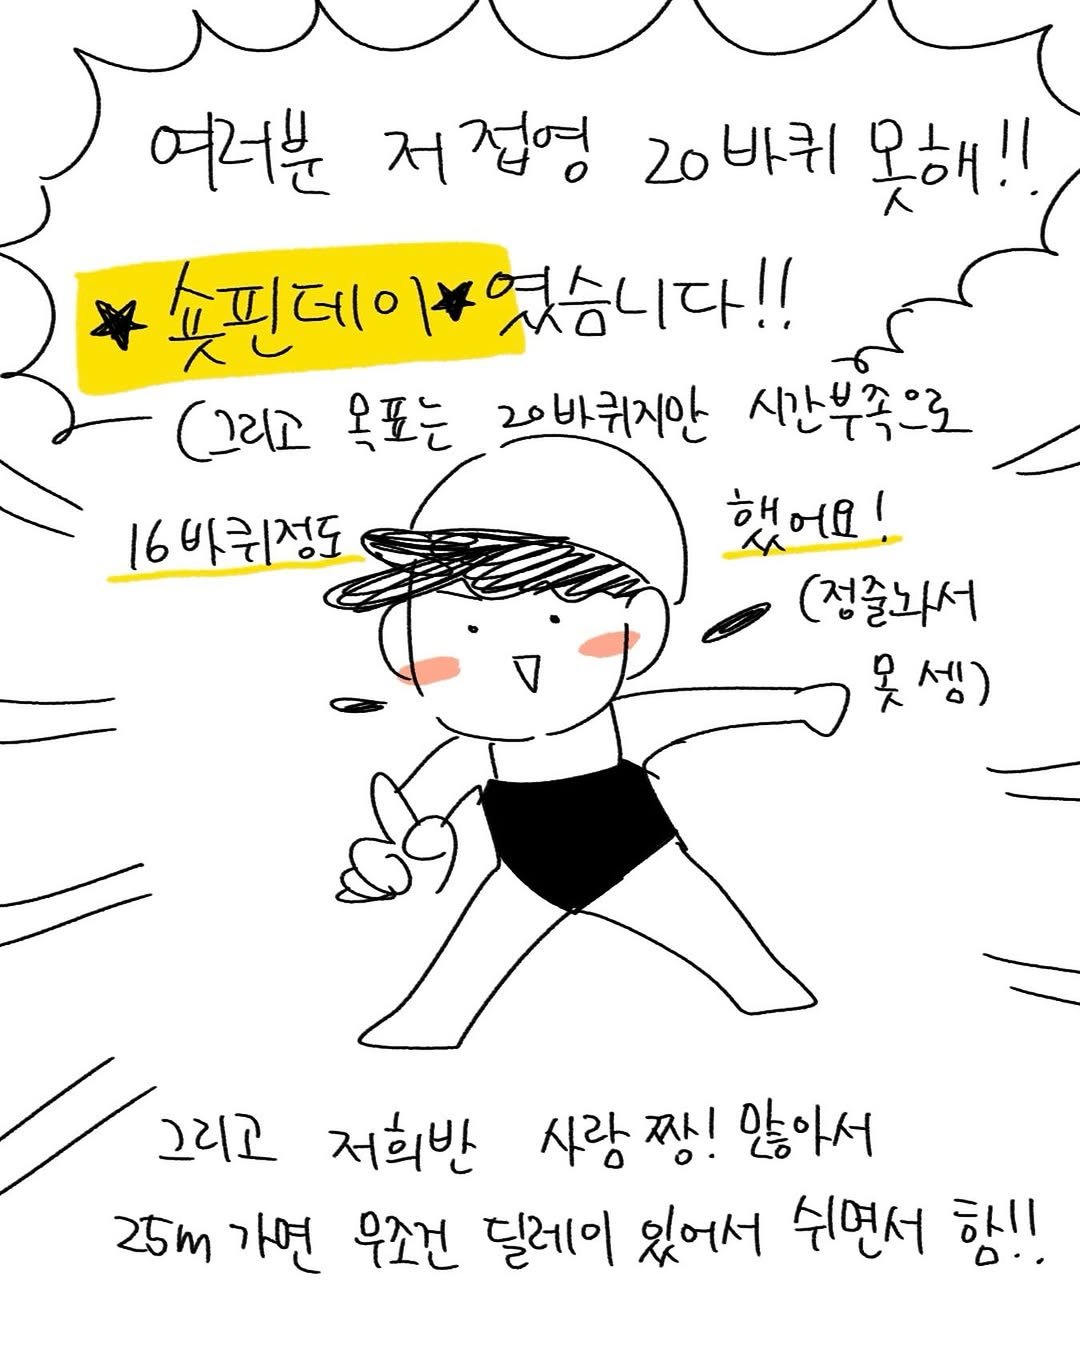 여러분 저 접영 20바퀴 못해!!
★숏핀데이★였습니다!!
(그리고 목표는 20바퀴지만 시간부족으로
16바퀴정도 했어요!
(정줄놔서
못 셈)
그리고 저희반 사람 짱! 많아서
25m 가면 무조건 딜레이 있어서 쉬면서 함!!